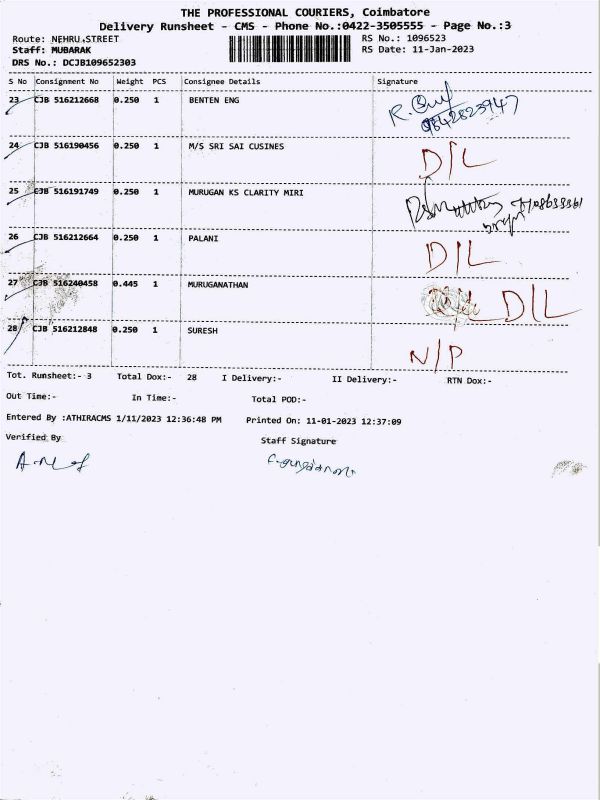 THE PROFESSIONAL COURIERS, Coimbatore
Delivery Runsheet - CMS - Phone No.:0422-3505555 - Page No.:3
Route: NEHRU.STREET
RS No.: 1096523
Staff: MUBARAK
RS Date: 11-Jan-2023
DRS No.: DCJB109652303
S No Consignment No Weight PCS Consignee Details Signature
23 CJB 516212668 0.250 1 BENTEN ENG R.
9842823947
24 CJB 516190456 0.250 1 M/S SRI SAI CUSINES D/L
25 CJB 516191749 0.250 1 MURUGAN KS CLARITY MIRI
26 CJB 516212664 0.250 1 PALANI D/L
27 CJB 516240458 0.445 1 MURUGANATHAN D/L
28 CJB 516212848 0.250 1 SURESH N/P
Tot. Runsheet:- 3 Total Dox:- 28 I Delivery:- II Delivery:- RTN Dox:-
Out Time:- In Time:- Total POD:-
Entered By :ATHIRACMS 1/11/2023 12:36:48 PM Printed On: 11-01-2023 12:37:09
Verified By Staff Signature